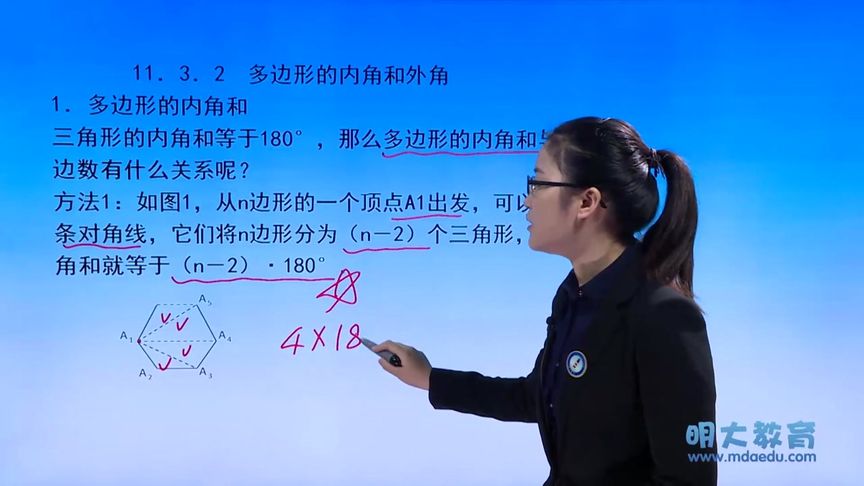 11．3．2 多边形的内角和外角
1．多边形的内角和
三角形的内角和等于180°，那么多边形的内角和与
边数有什么关系呢？
方法1：如图1，从n边形的一个顶点A1出发，可以
条对角线，它们将n边形分为（n－2）个三角形，
角和就等于（n－2）·180°
A5
A1
A4
A2
A3
4×18
明大教育
www.mdaedu.com